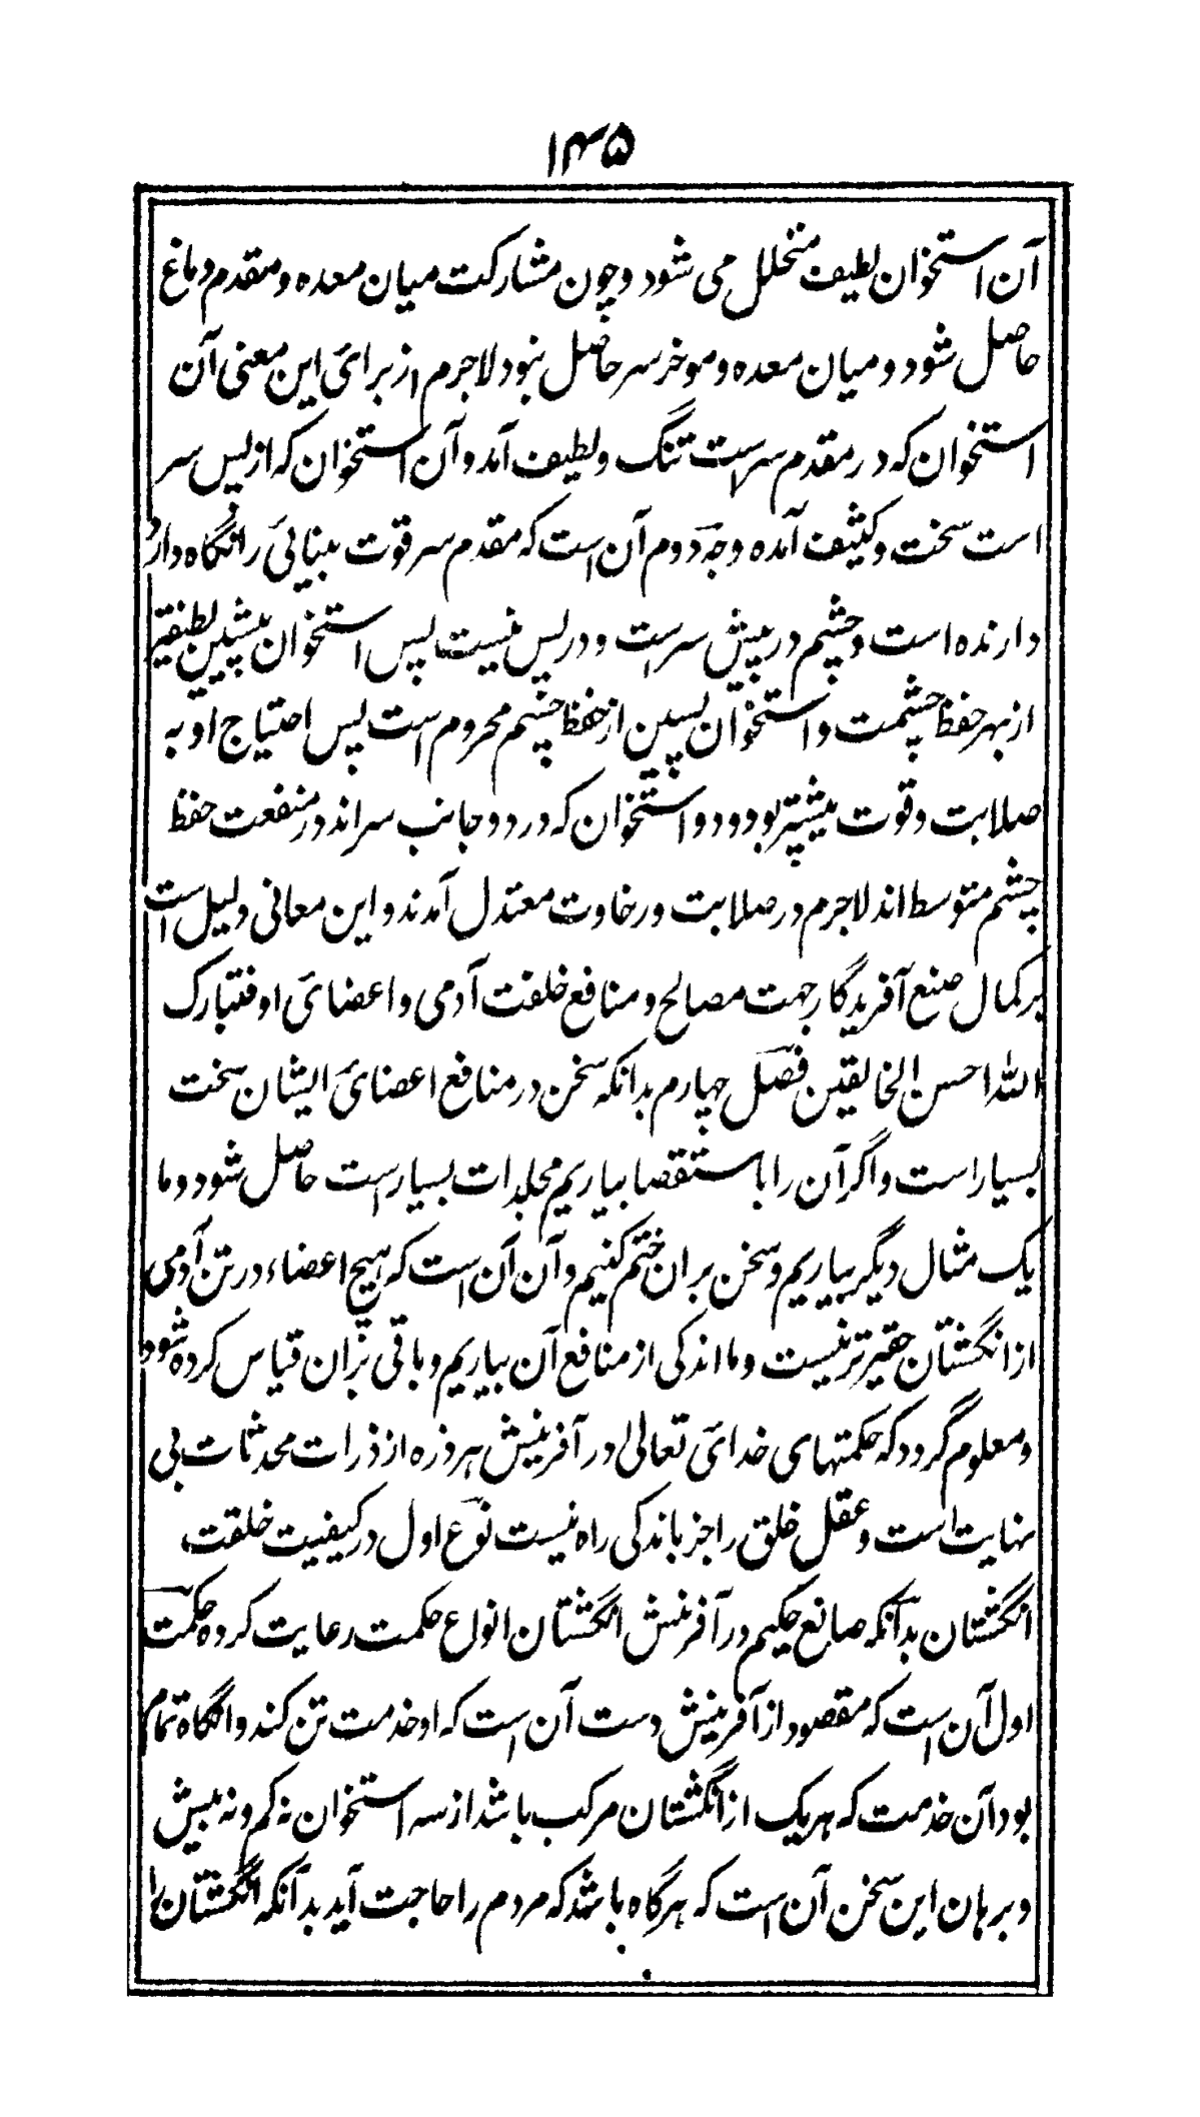 ۱۴۵
آن استخوان لطیف متخلل می شود و چون مشارکت میان معده و مقدم دماغ
حاصل شود و میان معده و موخر سر حاصل نبود لاجرم از برای این معنی آن
استخوان که در مقدم سر است تنگ و لطیف آمد و آن استخوان که از پس سر
است سخت و کثیف آمده وجه دوم آن است که مقدم سر قوت بینائی را نگاه دار
دارنده است و چشم در پیش سر است و در پس نیست پس استخوان پیشین لطیفتر
از بهر حفظ چشمت و استخوان پسین از حفظ چشم محروم است پس احتیاج او به
صلابت و قوت بیشتر بود و دو استخوان که در دو جانب سر اند در منفعت حفظ
چشم متوسط اند لاجرم در صلابت و رخاوت معتدل آمدند و این معانی دلیل است
بر کمال صنع آفریدگار جهت مصالح و منافع خلقت آدمی و اعضائ او فتبارک
الله احسن الخالقین فصل چهارم بدانکه سخن در منافع اعضائ ایشان سخت
بسیار است و اگر آن را باستقصا بیاریم مجلدات بسیار است حاصل شود و ما
یک مثال دیگر بیاریم و سخن بران ختم کنیم و آن آن است که هیچ اعضاء در تن آدمی
از انگشتان حقیر تر نیست و ما اندکی از منافع آن بیاریم و باقی بران قیاس کرده شود
و معلوم گردد که حکمتهای خدائ تعالیٰ در آفرینش هر ذره از ذرات محدثات بی
نهایت است و عقل خلق را جز باندکی راه نیست نوع اول در کیفیت خلقت
انگشتان بدانکه صانع حکیم در آفرینش انگشتان انواع حکمت رعایت کرده حکمت
اول آن است که مقصود از آفرینش دست آن است که او خدمت تن کند و انگاه تمام
بود آن خدمت که هر یک از انگشتان مرکب باشد از سه استخوان نه کم و نه بیش
و برهان این سخن آن است که هرگاه باشد که مردم را حاجت آید بدانکه انگشتان را